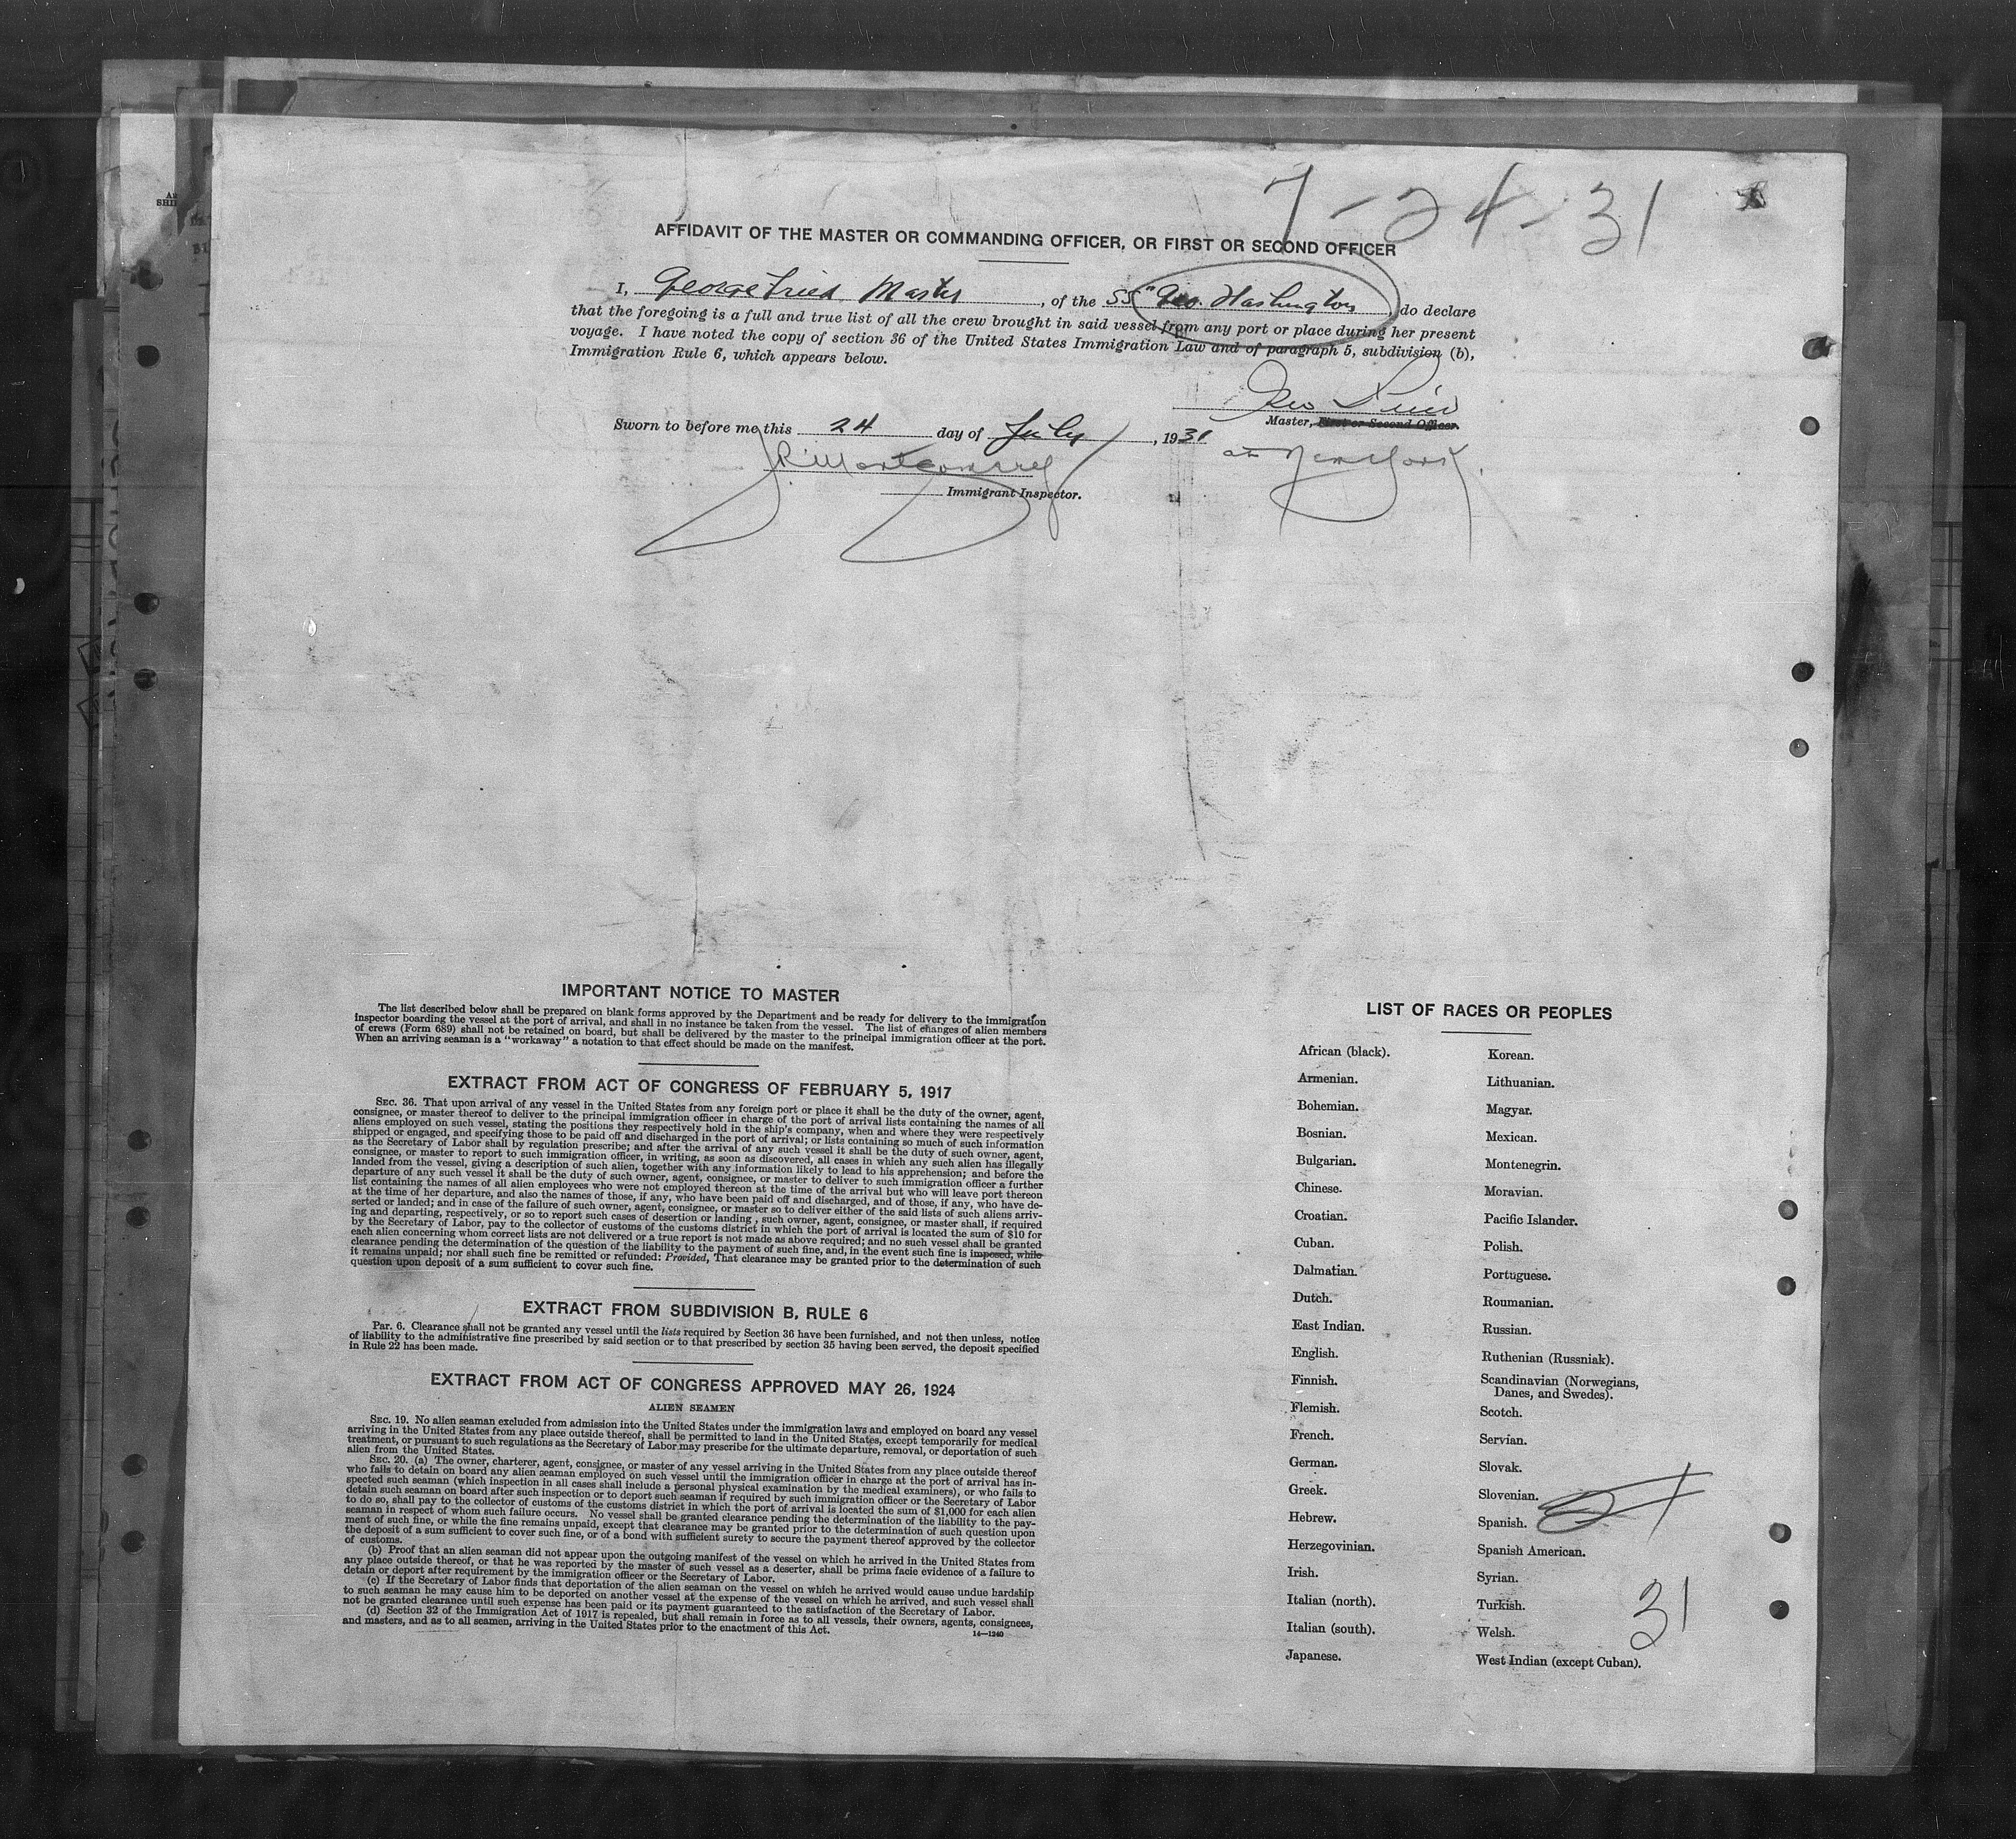 7-24-31
AFFIDAVIT OF THE MASTER OR COMMANDING OFFICER, OR FIRST OR SECOND OFFICER
I, George Fried Master, of the SS "Geo. Washington do declare
that the foregoing is a full and true list of all the crew brought in said vessel from any port or place during her present
voyage. I have noted the copy of section 36 of the United States Immigration Law and of paragraph 5, subdivision (b),
Immigration Rule 6, which appears below.
Geo Fried
Master, First or Second Officer.
Sworn to before me this 24 day of July, 1931
at New York.
J.R. Montgomery
Immigrant Inspector.
IMPORTANT NOTICE TO MASTER
The list described below shall be prepared on blank forms approved by the Department and be ready for delivery to the immigration
inspector boarding the vessel at the port of arrival, and shall in no instance be taken from the vessel. The list of changes of alien members
of crews (Form 689) shall not be retained on board, but shall be delivered by the master to the principal immigration officer at the port.
When an arriving seaman is a "workaway" a notation to that effect should be made on the manifest.
EXTRACT FROM ACT OF CONGRESS OF FEBRUARY 5, 1917
SEC. 36. That upon arrival of any vessel in the United States from any foreign port or place it shall be the duty of the owner, agent,
consignee, or master thereof to deliver to the principal immigration officer in charge of the port of arrival lists containing the names of all
aliens employed on such vessel, stating the positions they respectively hold in the ship's company, when and where they were respectively
shipped or engaged, and specifying those to be paid off and discharged in the port of arrival; or lists containing so much of such information
as the Secretary of Labor shall by regulation prescribe; and after the arrival of any such vessel it shall be the duty of such owner, agent,
consignee, or master to report to such immigration officer, in writing, as soon as discovered, all cases in which any such alien has illegally
landed from the vessel, giving a description of such alien, together with any information likely to lead to his apprehension; and before the
departure of any such vessel it shall be the duty of such owner, agent, consignee, or master to deliver to such immigration officer a further
list containing the names of all alien employees who were not employed thereon at the time of the arrival but who will leave port thereon
at the time of her departure, and also the names of those, if any, who have been paid off and discharged, and of those, if any, who have de-
serted or landed; and in case of the failure of such owner, agent, consignee, or master so to deliver either of the said lists of such aliens arriv-
ing and departing, respectively, or so to report such cases of desertion or landing, such owner, agent, consignee, or master shall, if required
by the Secretary of Labor, pay to the collector of customs of the customs district in which the port of arrival is located the sum of $10 for
each alien concerning whom correct lists are not delivered or a true report is not made as above required; and no such vessel shall be granted
clearance pending the determination of the question of the liability to the payment of such fine, and, in the event such fine is imposed, while
it remains unpaid; nor shall such fine be remitted or refunded: Provided, That clearance may be granted prior to the determination of such
question upon deposit of a sum sufficient to cover such fine.
EXTRACT FROM SUBDIVISION B, RULE 6
Par. 6. Clearance shall not be granted any vessel until the lists required by Section 36 have been furnished, and not then unless, notice
of liability to the administrative fine prescribed by said section or to that prescribed by section 35 having been served, the deposit specified
in Rule 22 has been made.
EXTRACT FROM ACT OF CONGRESS APPROVED MAY 26, 1924
ALIEN SEAMEN
SEC. 19. No alien seaman excluded from admission into the United States under the immigration laws and employed on board any vessel
arriving in the United States from any place outside thereof, shall be permitted to land in the United States, except temporarily for medical
treatment, or pursuant to such regulations as the Secretary of Labor may prescribe for the ultimate departure, removal, or deportation of such
alien from the United States.
SEC. 20. (a) The owner, charterer, agent, consignee, or master of any vessel arriving in the United States from any place outside thereof
who fails to detain on board any alien seaman employed on such vessel until the immigration officer in charge at the port of arrival has in-
spected such seaman (which inspection in all cases shall include a personal physical examination by the medical examiners), or who fails to
detain such seaman on board after such inspection or to deport such seaman if required by such immigration officer or the Secretary of Labor
to do so, shall pay to the collector of customs of the customs district in which the port of arrival is located the sum of $1,000 for each alien
seaman in respect of whom such failure occurs. No vessel shall be granted clearance pending the determination of the liability to the pay-
ment of such fine, or while the fine remains unpaid, except that clearance may be granted prior to the determination of such question upon
the deposit of a sum sufficient to cover such fine, or of a bond with sufficient surety to secure the payment thereof approved by the collector
of customs.
(b) Proof that an alien seaman did not appear upon the outgoing manifest of the vessel on which he arrived in the United States from
any place outside thereof, or that he was reported by the master of such vessel as a deserter, shall be prima facie evidence of a failure to
detain or deport after requirement by the immigration officer or the Secretary of Labor.
(c) If the Secretary of Labor finds that deportation of the alien seaman on the vessel on which he arrived would cause undue hardship
to such seaman he may cause him to be deported on another vessel at the expense of the vessel on which he arrived, and such vessel shall
not be granted clearance until such expense has been paid or its payment guaranteed to the satisfaction of the Secretary of Labor.
(d) Section 32 of the Immigration Act of 1917 is repealed, but shall remain in force as to all vessels, their owners, agents, consignees,
and masters, and as to all seamen, arriving in the United States prior to the enactment of this Act.
14—1240
LIST OF RACES OR PEOPLES
African (black).
Armenian.
Bohemian.
Bosnian.
Bulgarian.
Chinese.
Croatian.
Cuban.
Dalmatian.
Dutch.
East Indian.
English.
Finnish.
Flemish.
French.
German.
Greek.
Hebrew.
Herzegovinian.
Irish.
Italian (north).
Italian (south).
Japanese.
Korean.
Lithuanian.
Magyar.
Mexican.
Montenegrin.
Moravian.
Pacific Islander.
Polish.
Portuguese.
Roumanian.
Russian.
Ruthenian (Russniak).
Scandinavian (Norwegians,
Danes, and Swedes).
Scotch.
Servian.
Slovak.
Slovenian.
Spanish.
Spanish American.
Syrian.
Turkish.
Welsh.
West Indian (except Cuban).
31